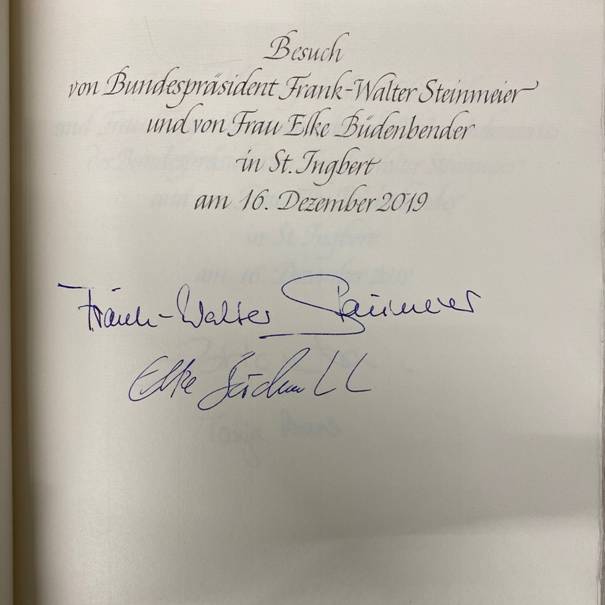 Besuch
von Bundespräsident Frank-Walter Steinmeier
und von Frau Elke Büdenbender
in St. Ingbert
am 16. Dezember 2019
Frank-Walter Steinmeier
Elke Büdenbender